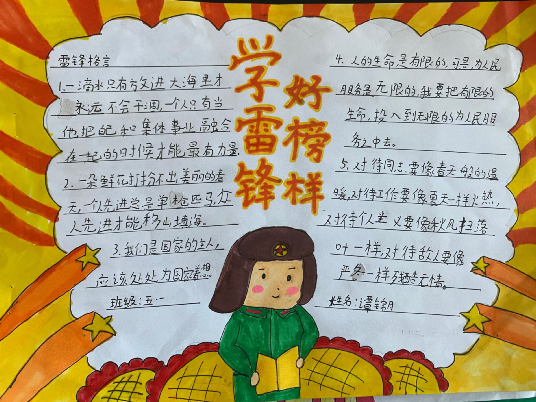 学雷锋
好榜样
雷锋格言
1.一滴水只有放进大海里才
永远不会干涸,一个人只有当
他把自己和集体事业融合
在一起的时候才能最有力量
2.一朵鲜花打扮不出美丽的春
天,个人先进总是单枪匹马,众
人先进才能移山填海。
3.我们是国家的主人,
应该处处为国家着想
班级:五一
4.人的生命是有限的,可是,为人民
服务是无限的,我要把有限的
生命,投入到无限的为人民服
务之中去。
5.对待同志要像春天般的温
暖,对待工作要像夏天一样火热,
对待个人主义要像秋风扫落
叶一样,对待敌人要像
严冬一样残酷无情。
姓名:谭